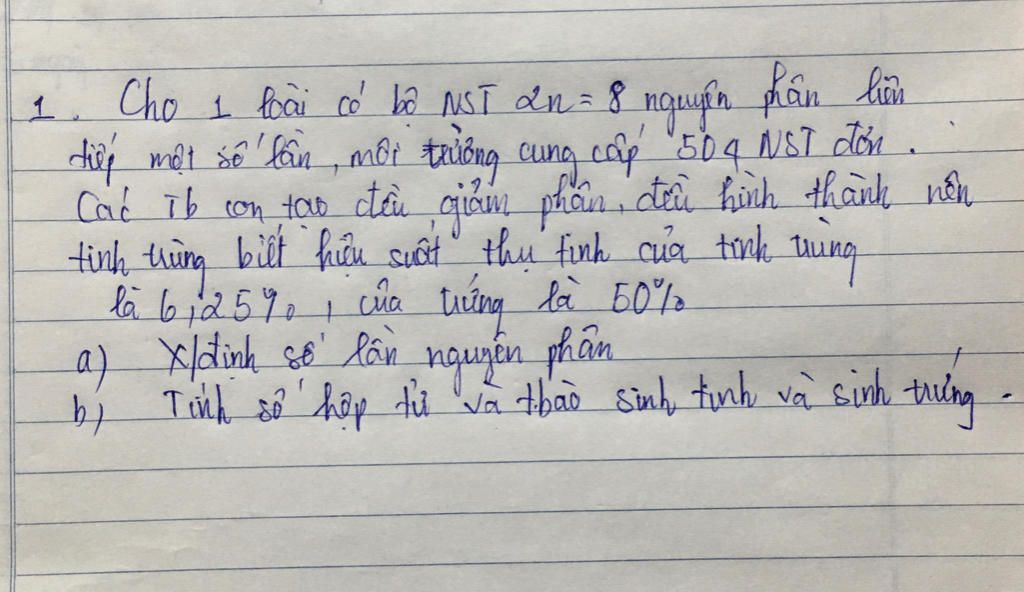 1. Cho 1 loài có bộ NST 2n = 8 nguyên phân liên
tiếp một số lần, môi trường cung cấp 504 NST đơn.
Các Tb con tạo đều giảm phân, đều hình thành nên
tinh trùng biết hiệu suất thụ tinh của tinh trùng
là 6,25%, của trứng là 50%
a) X/định số lần nguyên phân
b) Tính số hợp tử và t.bào sinh tinh và sinh trứng.